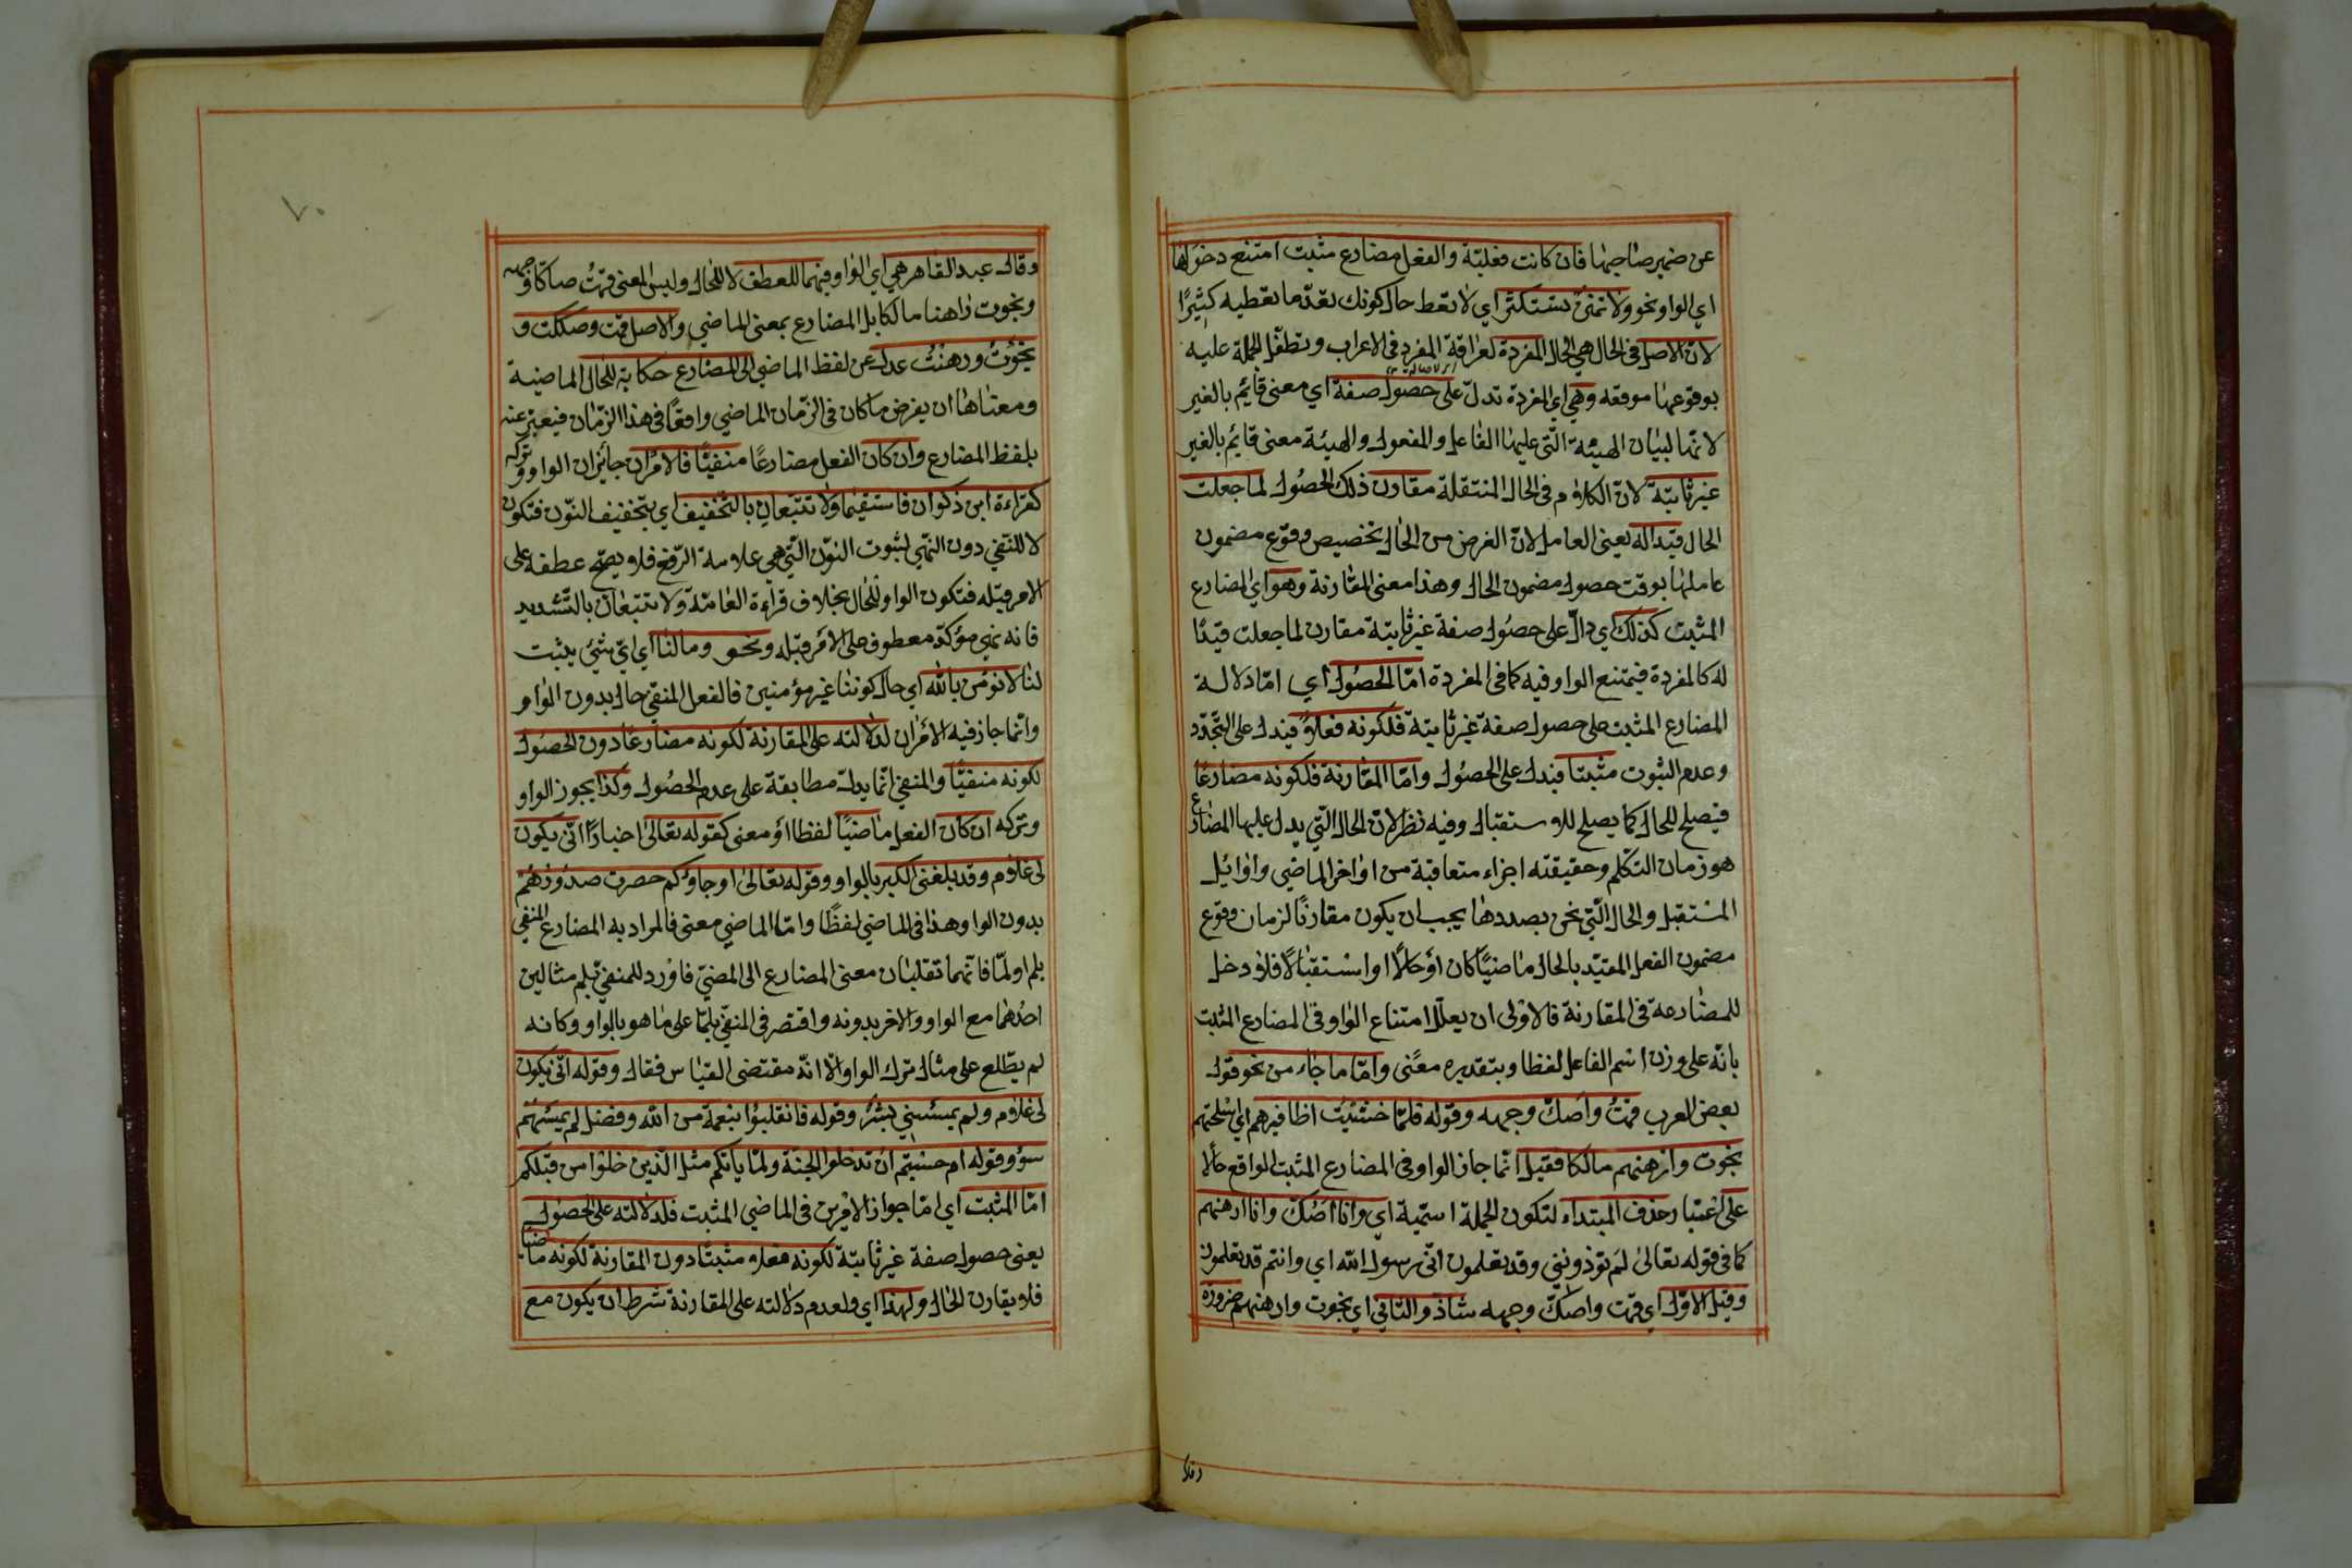 عن ضمير صاحبها فان كانت فعلية والفعل مضارع مثبت امتنع دخولها
اي الواو نحو ولا تمنن تستكثر اي لا تعط حال كونك تعدّ ما تعطيه كثيرًا
لانّ الاصل في الحال هي الحال المفردة لعراقة المفرد في الاعراب وتطفّل الجملة عليه
بوقوعها موقعه وهي اي المفردة تدلّ على حصول صفة اي معنى قايم بالغير
لانّها لبيان الهيئة الّتي عليها الفاعل والمفعول والهيئة معنى قايم بالغير
غير ثابتة لانّ الكلام في الحال المنتقلة مقارن ذلك الحصول لما جعلت
الحال قيدا له يعني العامل لانّ الغرض من الحال تخصيص وقوع مضمون
عاملها بوقت حصول مضمون الحال وهذا معنى المقارنة وهو اي المضارع
المثبت كذلك اي دالّ على حصول صفة غير ثابتة مقارن لما جعلت قيدًا
له كالمفردة فيمتنع الواو فيه كما في المفردة امّا الحصول اي امّا دلالة
المضارع المثبت على حصول صفة غير ثابتة فلكونه فعلا فيدل على التّجدّد
وعدم الثبوت مثبتا فيدل على الحصول وامّا المقارنة فلكونه مضارعًا
فيصلح للحال كما يصلح للاستقبال وفيه نظر لانّ الحال الّتي يدل عليها المضارع
هو زمان التكلم وحقيقته اجزاء متعاقبة من اواخر الماضي واوائل
المستقبل والحال الّتي نحن بصددها يجب ان يكون مقارنًا لزمان وقوع
مضمون الفعل المقيّد بالحال ماضيًا كان او حالًا او استقبالًا فلا دخل
للمضارعة في المقارنة فالاولى ان يعلّل امتناع الواو في المضارع المثبت
بانّه على وزن اسم الفاعل لفظا وبتقديره معنًى وامّا ما جاء من نحو قول
بعض العرب قمتُ واصكّ وجهه وقوله فلمّا خشيت اظافيرهم اي اسلحتهم
نجوت وارهنهم مالكا فقيل انّما جاز الواو في المضارع المثبت الواقع حالا
على اعتبار حذف المبتداء لتكون الجملة اسمّية اي وانا اصكّ وانا ارهنهم
كما في قوله تعالى لم تؤذونني وقد تعلمون انّي رسول الله اي وانتم قد تعلمون
وقيل الاوّل اي قمت واصكّ وجهه شاذّ والثاني اي نجوت وارهنهم ضرورة
وقال
٧٠
وقال عبد القاهر هي اي الواو فيهما للعطف لا للحال وليس المعنى قمتُ صاكّا وجهه
ونجوت راهنا مالكا بل المضارع بمعنى الماضي والاصل قمت وصككت و
نجوت ورهنت عدل عن لفظ الماضي الى المضارع حكاية للحال الماضية
ومعناها ان يفرض ما كان في الزّمان الماضي واقعًا في هذا الزّمان فيعبّر عنه
بلفظ المضارع وان كان الفعل مضارعًا منفيًّا فالامران جائزان الواو وتركه
كقراءة ابن ذكوان فاستقيما ولا تتبعان بالتّخفيف اي بتخفيف النّون فتكون
لا للنّفي دون النّهي لثبوت النوّن الّتي هي علامة الرّفع فلا يصحّ عطفه على
الامر قبله فتكون الواو للحال بخلاف قراءة العامّة ولا تتبعانّ بالتّشديد
فانه نهي مؤكّد معطوف على الامر قبله ونحو وما لنا اي ايّ شئ يثبت
لنا لا نؤمن بالله اي حال كوننا غير مؤمنين فالفعل المنفي حال بدون الواو
وانّما جاز فيه الأمران لدلالته على المقارنة لكونه مضارعًا دون الحصول
لكونه منفيًّا والمنفي انّما يدلّ مطابقة على عدم الحصول وكذا يجوز الواو
وتركه ان كان الفعل ماضيًا لفظا او معنى كقوله تعالى اخبارًا انّى يكون
لي غلام وقد بلغني الكبر بالواو وقوله تعالى او جاؤكم حصرت صدورهم
بدون الواو وهذا في الماضي لفظًا وامّا الماضي معنى فالمراد به المضارع المنفي
بلم او لمّا فانّهما تقلبان معنى المضارع الى المضيّ فاورد للمنفيّ بلم مثالين
احدهما مع الواو والاخر بدونه واقتصر في المنفيّ بلمّا على ما هو بالواو وكانه
لم يطّلع على مثال ترك الواو الّا انّه مقتضى القياس فقال وقوله انّى يكون
لي غلام ولم يمسسني بشرٌ وقوله فانقلبوا بنعمة من الله وفضل لم يمسسهم
سوؤ وقوله ام حسبتم ان تدخلوا الجنّة ولمّا يأتكم مثل الّذين خلوا من قبلكم
امّا المثبت اي امّا جواز الامرين في الماضي المثبت فلدلالته على الحصول
يعني حصول صفة غير ثابتة لكونه فعلا مثبتًا دون المقارنة لكونه ماضيا
فلا يقارن الحال ولهذا اي ولعدم دلالته على المقارنة شرط ان يكون مع